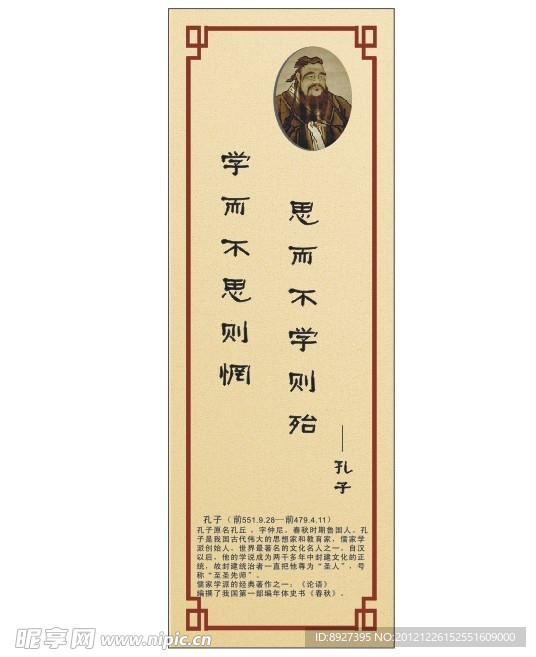 学而不思则惘
思而不学则殆
——孔子
孔子（前551.9.28—前479.4.11）
孔子原名孔丘，字仲尼，春秋时期鲁国人。孔
子是我国古代伟大的思想家和教育家，儒家学
派创始人，世界最著名的文化名人之一。自汉
以后，他的学说成为两千多年中封建文化的正
统，故封建统治者一直把他尊为“圣人”，号
称“至圣先师”。
儒家学派的经典著作之一：《论语》
编撰了我国第一部编年体史书《春秋》。
昵享网 www.nipic.cn
ID:8927395 NO:20121226152551609000